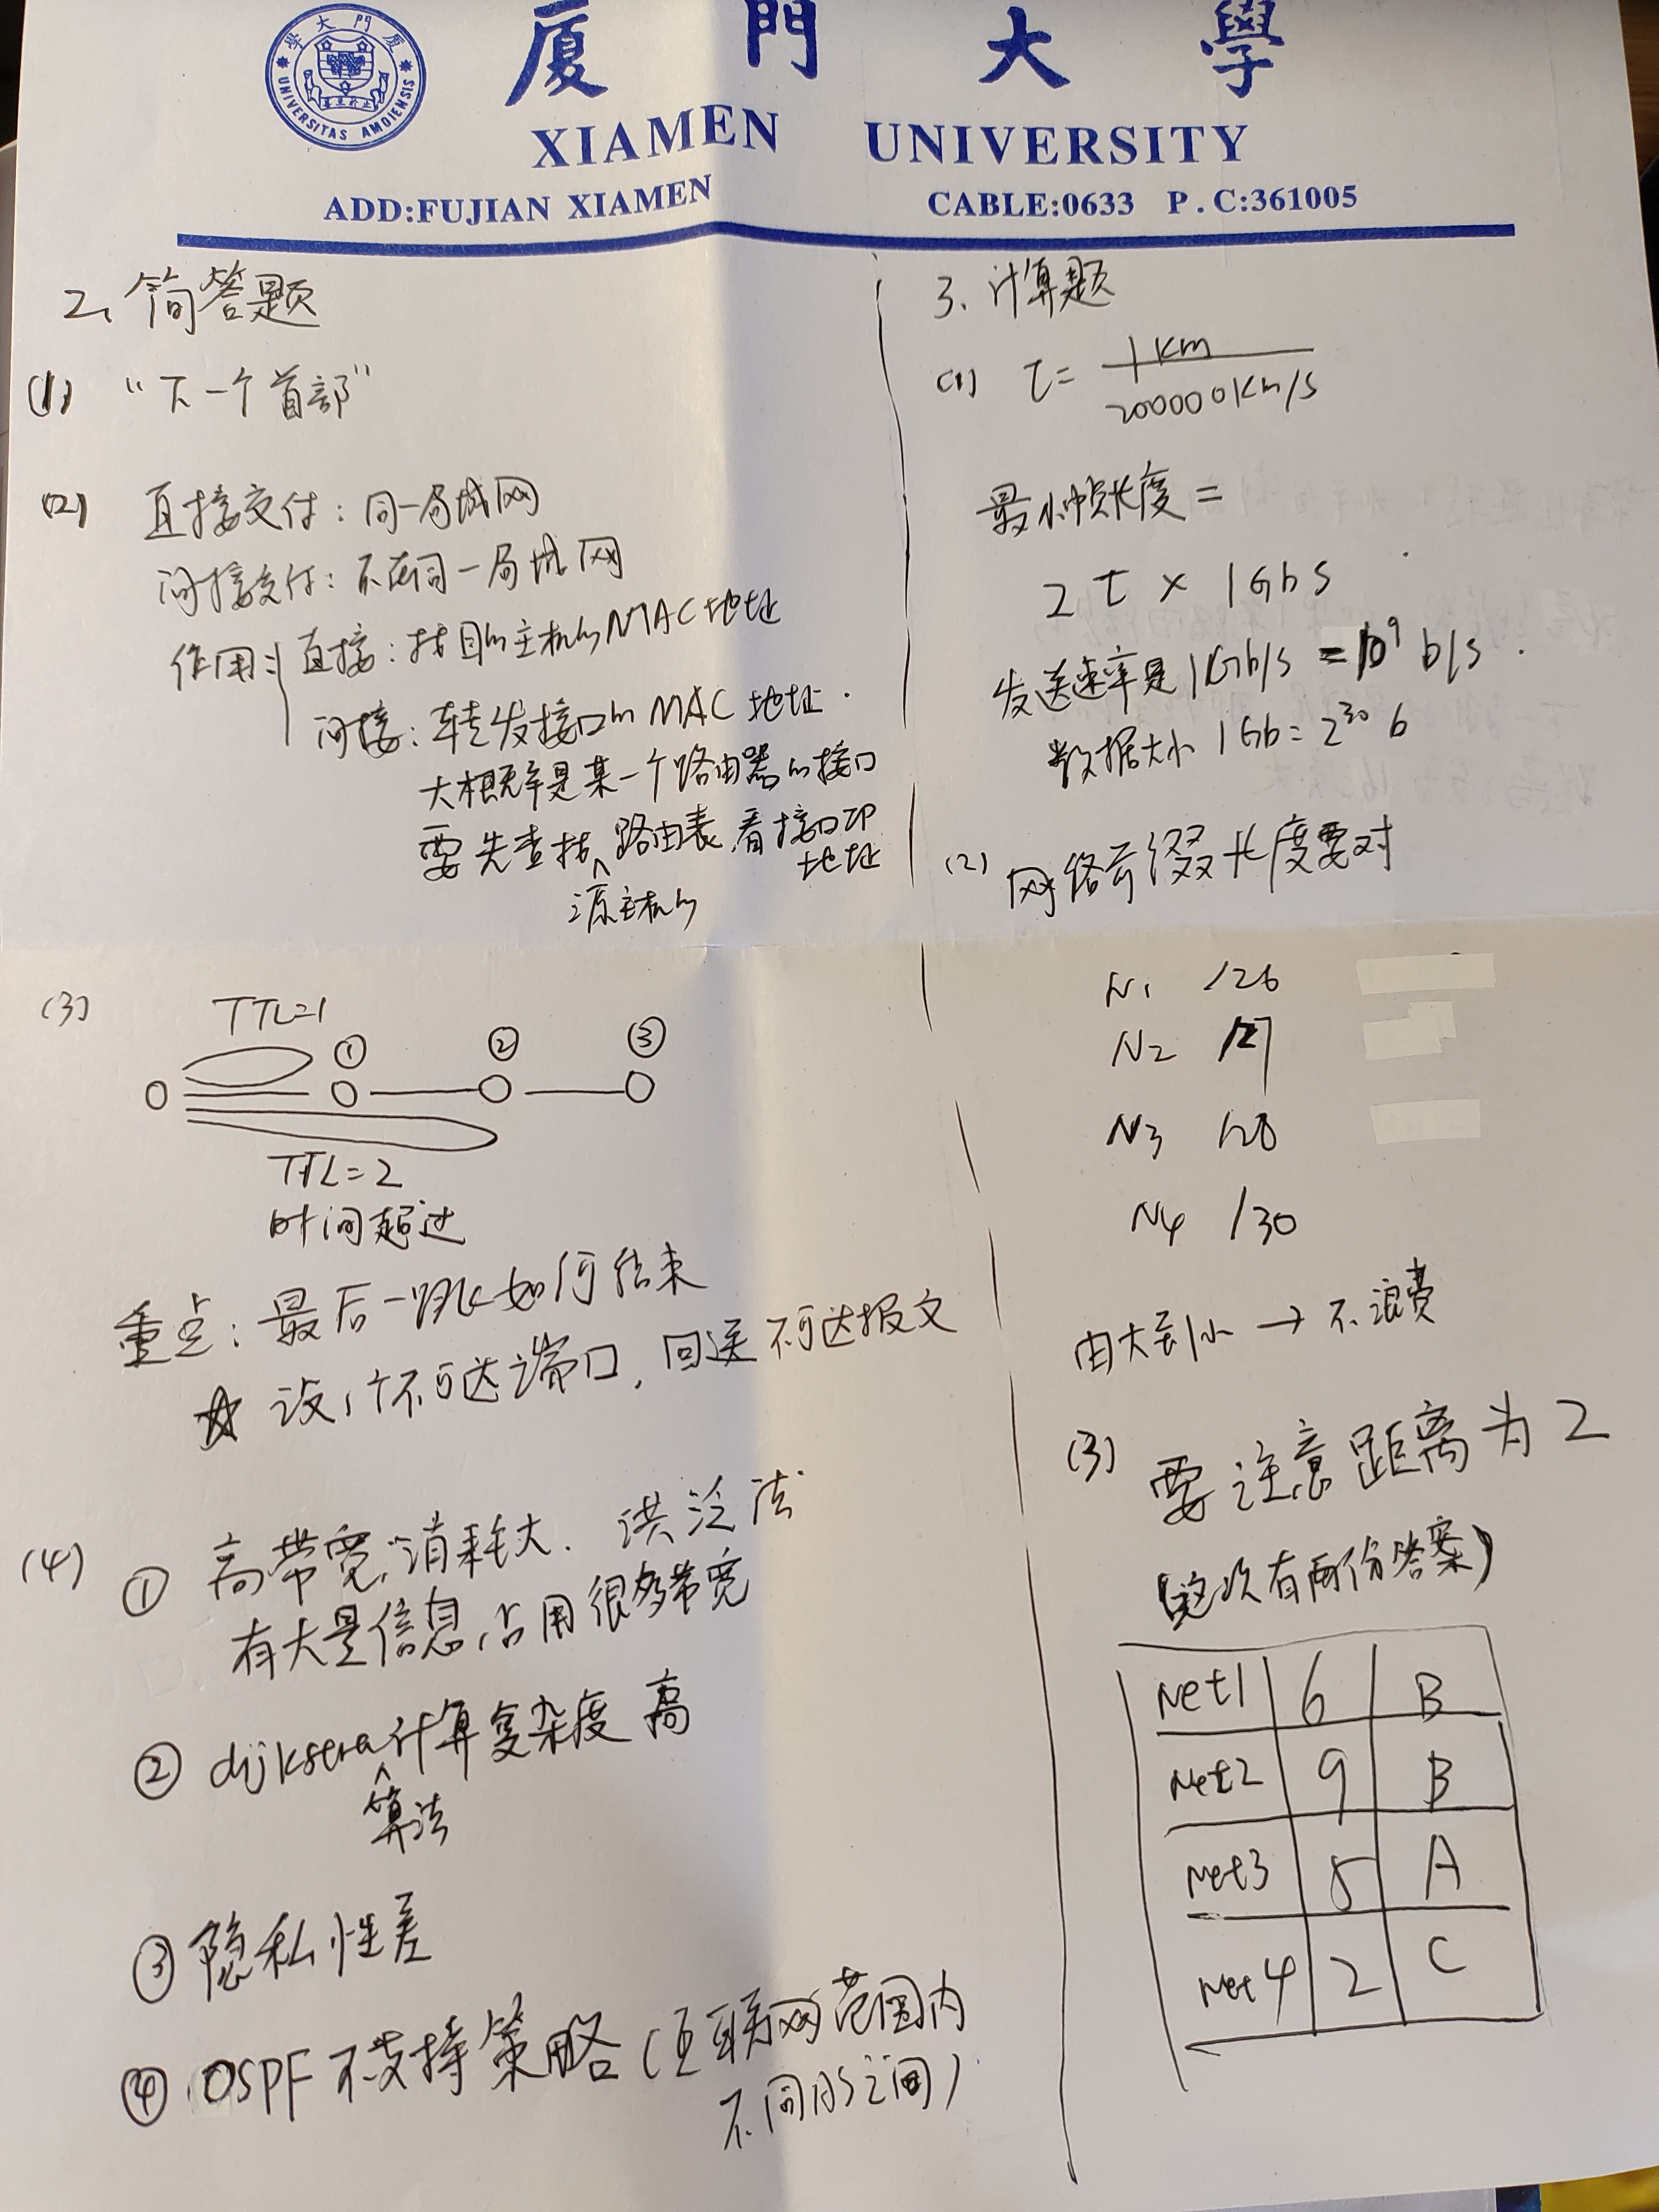 厦門大學
XIAMEN UNIVERSITY
ADD:FUJIAN XIAMEN CABLE:0633 P.C:361005
廈門大學
UNIVERSITAS AMOIENSIS
2、简答题
(1) “下一个首部”
(2) 直接交付：同一局域网
间接交付：不在同一局域网
作用：直接：找目的主机的MAC地址
间接：转发接口的MAC地址.
大概率是某一个路由器的接口
要先查找源主机的路由表,看接口IP
地址
(3) TTL=1
① ② ③
TTL=2
时间超过
重点：最后一跳如何结束
☆ 设1个不可达端口，回送不可达报文
(4) ① 高带宽,消耗大. 洪泛法
有大量信息,占用很多带宽
② dijkstra算法计算复杂度高
③ 隐私性差
④ OSPF不支持策略(互联网范围内
不同AS之间)
3、计算题
(1) τ= 1km
200000km/s
最小帧长度=
2τ × 1Gbs
发送速率是1Gb/s = 10⁹ b/s.
数据大小 1Gb=2³⁰ b
(2) 网络前缀长度要对
N1 /26
N2 /27
N3 /28
N4 /30
由大到小→不浪费
(3) 要注意距离为2
(这次有两份答案)
Net1 6 B
Net2 9 B
Net3 5 A
Net4 2 C